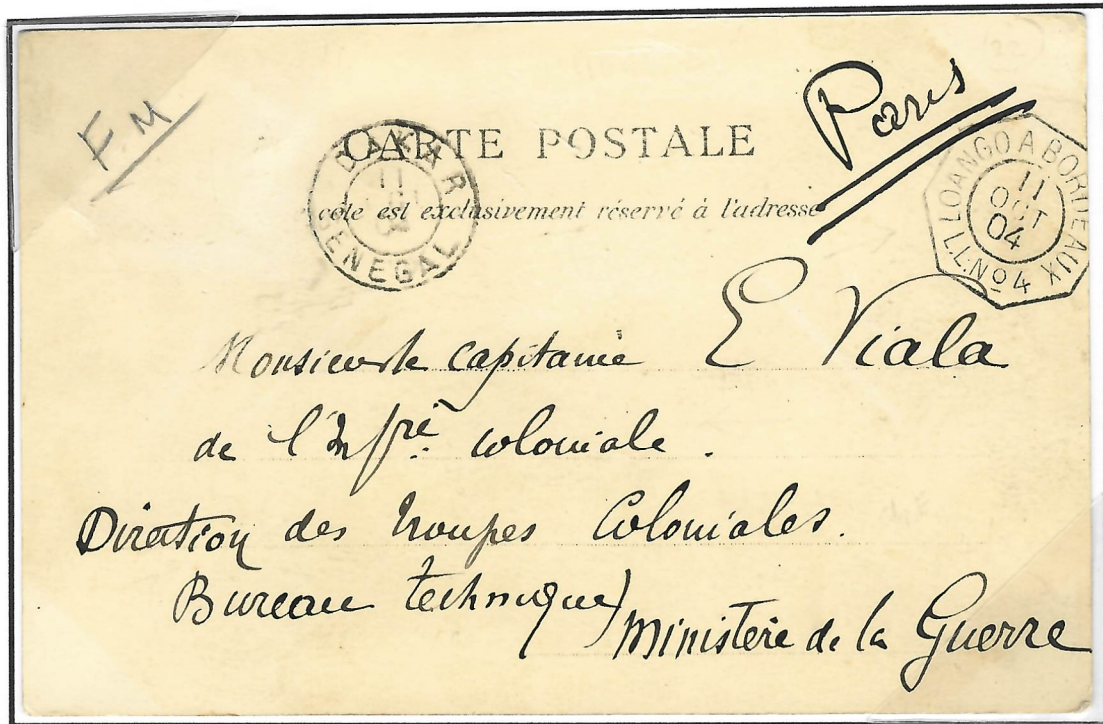 F.M
Paris
CARTE POSTALE
côté est exclusivement réservé à l'adresse
DAKAR
11
SENEGAL
LOANGO A BORDEAUX
11
OCT
04
L.L.No 4
Monsieur le Capitaine E Viala
de l'Infrie coloniale.
Direction des troupes Coloniales.
Bureau technique)
Ministère de la Guerre